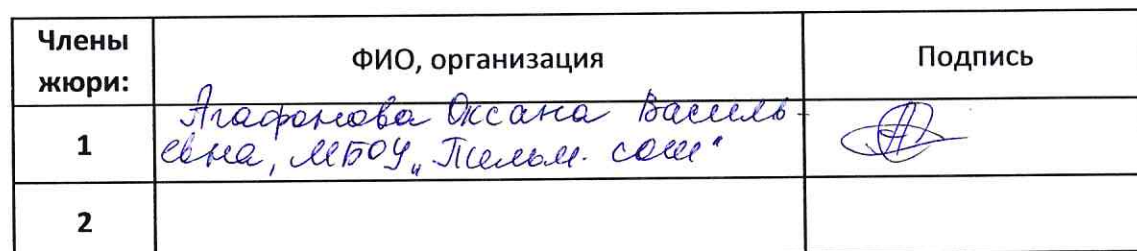 Члены
жюри:
ФИО, организация
Подпись
1
Агафонова Оксана Василь-
евна, МБОУ „Тельм. сош"
2